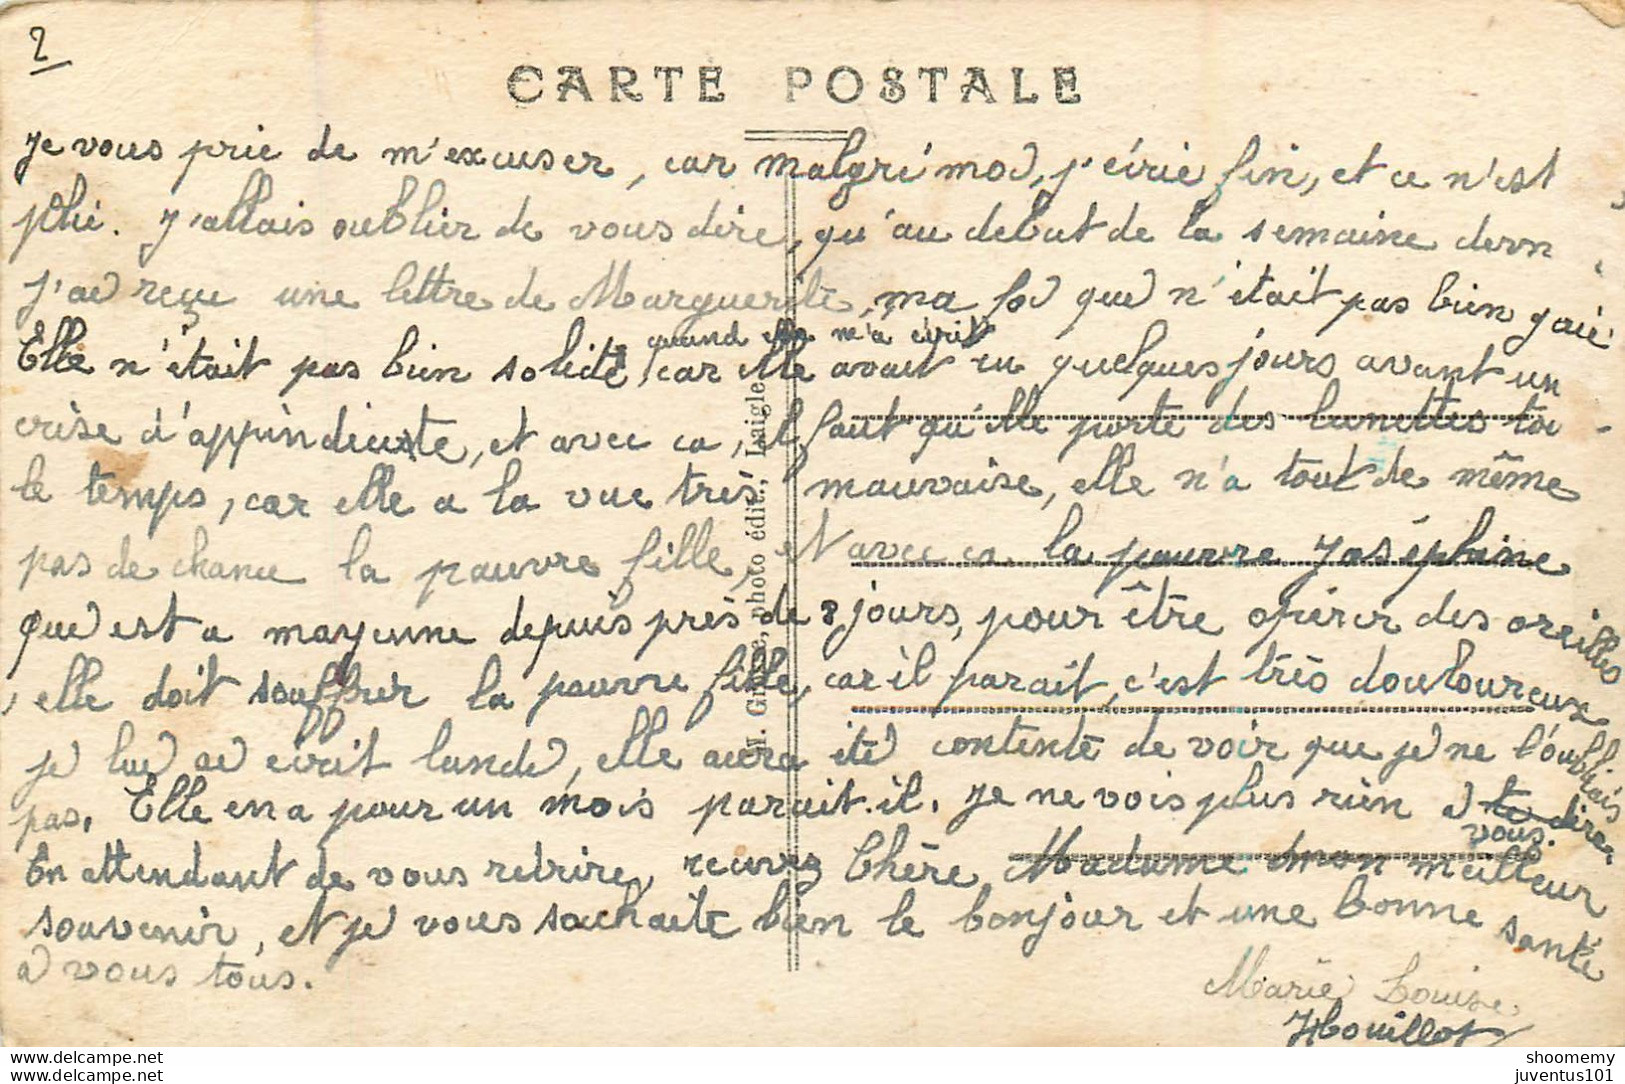 2
CARTE POSTALE
Je vous prie de m'excuser, car malgré moi, j'écrie fin, et ce n'est
plié. J'allais oublier de vous dire, qu'au debut de la semaine dern
j'ai reçue une lettre de Marguerite, ma foi que n'était pas bien gaie
quand elle m'a écrit
Elle n'était pas bien solide, car elle avait eu quelques jours avant un
crise d'appindiciste, et avec ca, il faut qu'elle porte des lunettes tou
le temps, car elle a la vue très mauvaise, elle n'a tout de même
pas de chance la pauvre fille, et avec ca la pauvre Joséphine
que est a mayenne depuis près de 8 jours, pour être opérer des oreilles
, elle doit souffrir la pauvre fille, car il parait, c'est très douloureux
je lui ai écrit lundi, elle aura été contente de voir que je ne l'oubliais
pas. Elle en a pour un mois parait-il. Je ne vois plus rien à te dire
vous.
En attendant de vous redrire, recevez Chère Madame mon meilleur
souvenir, et je vous souhaite bien le bonjour et une bonne santé
à vous tous.
Marie Louise
Houillot
photo édit., Laigle
shoomemy
juventus101